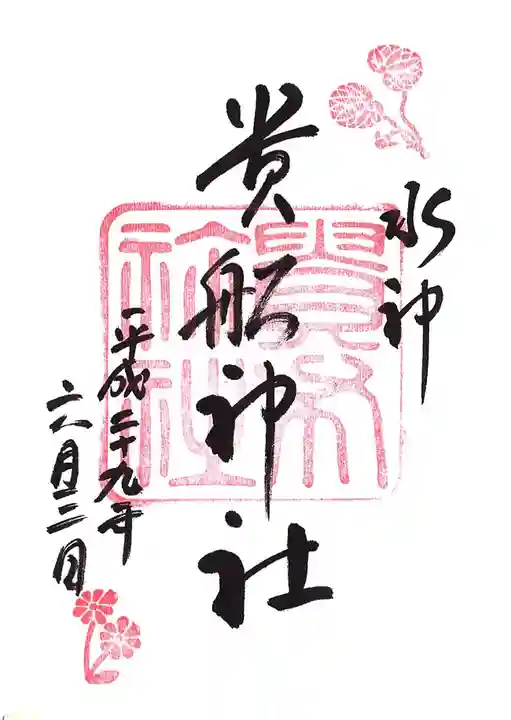 水神
貴船神社
平成二十九年
六月三日